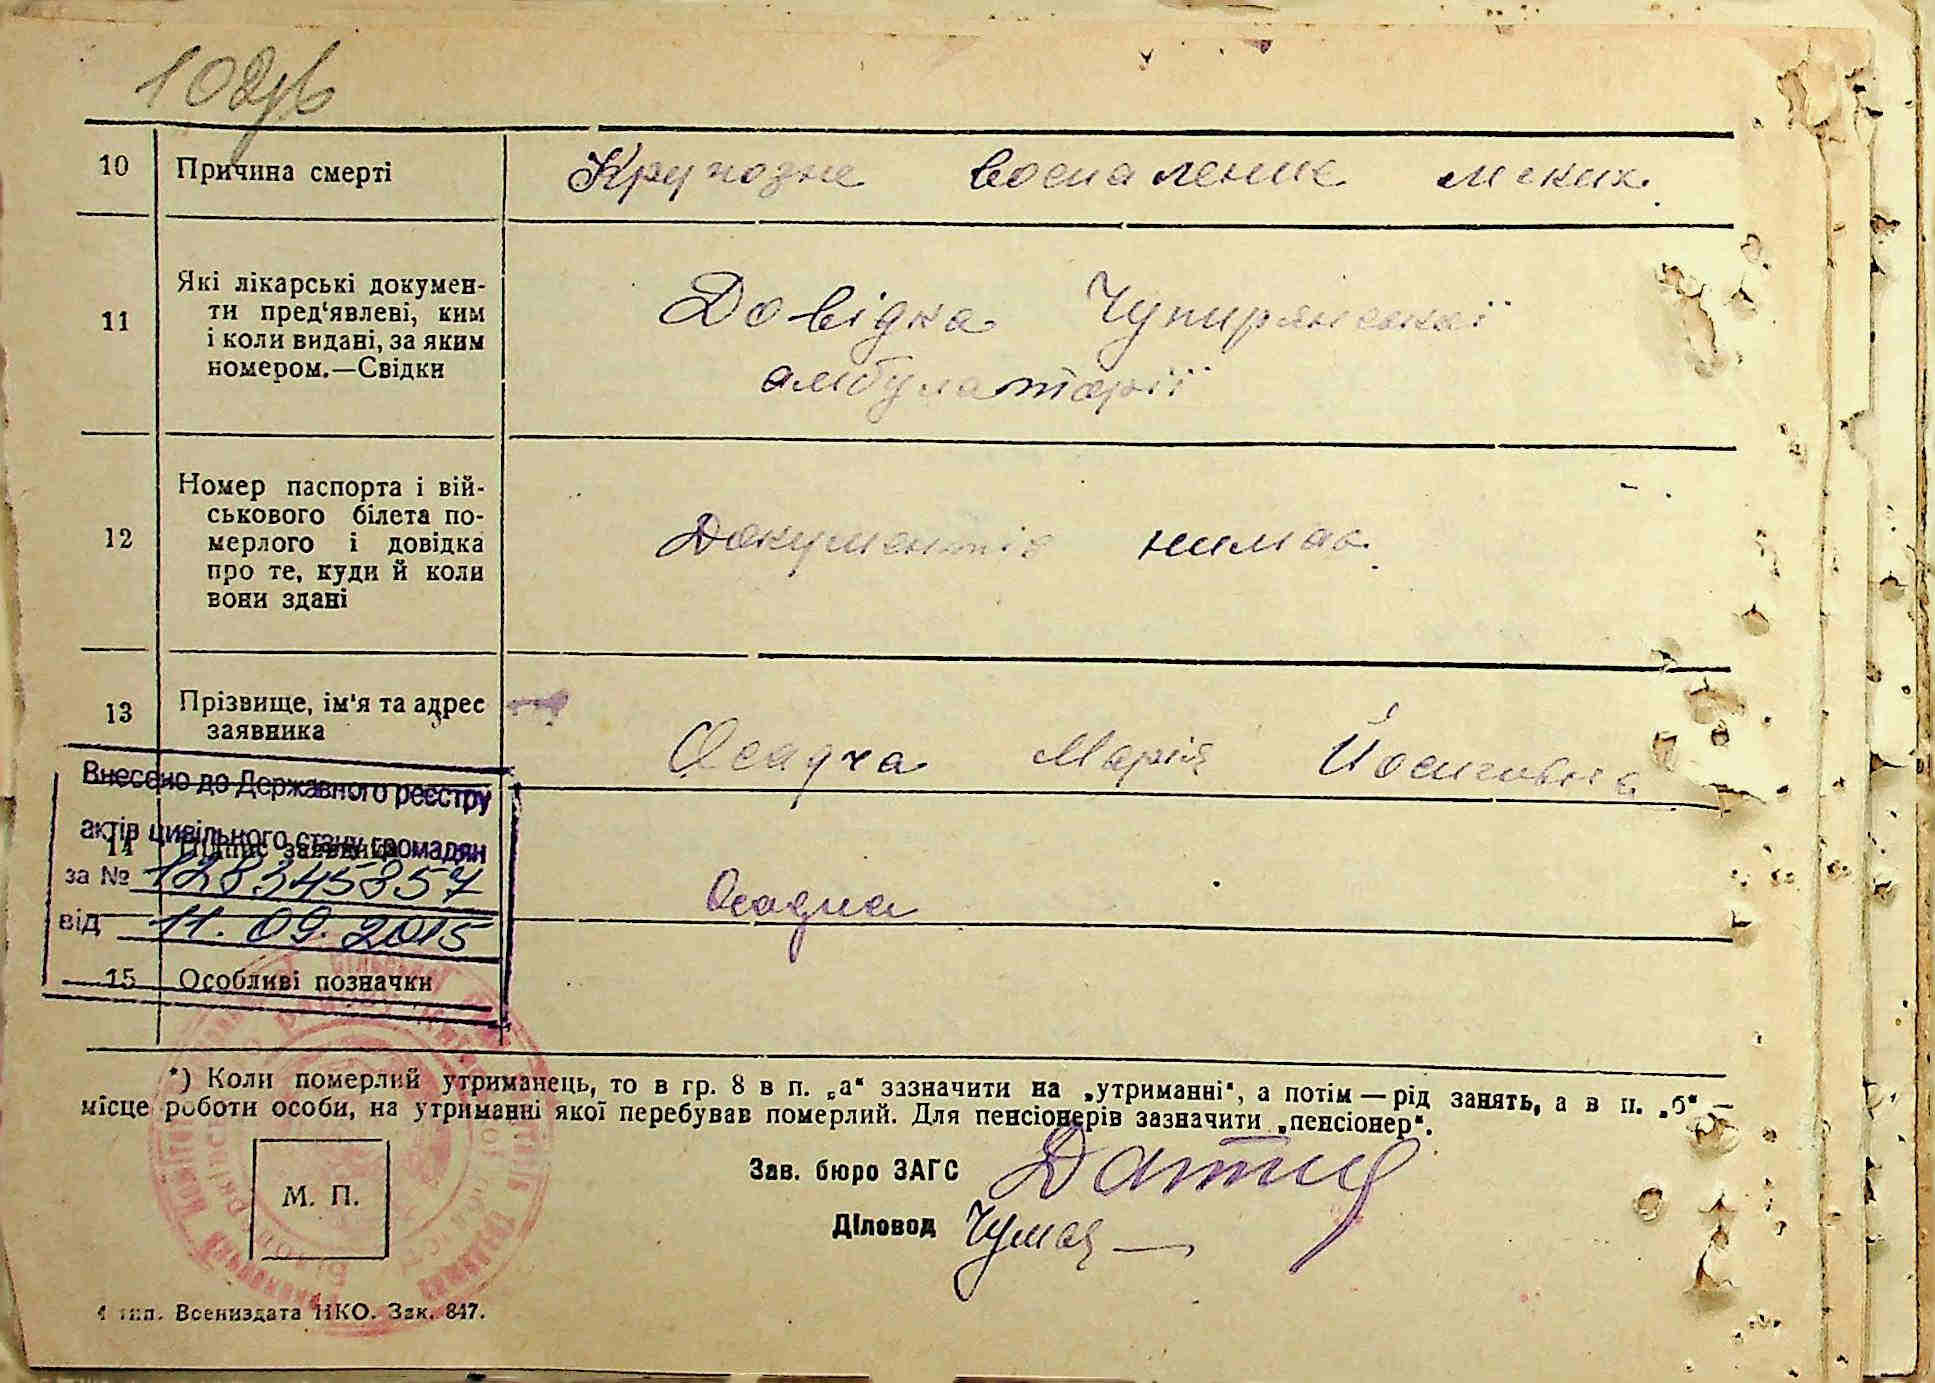 10
Причина смерті
воспаление
11
Які лікарські докумен-
ти пред'явлені, ким
і коли видані, за яким
номером.—Свідки
Довідка Чупирянської
амбулаторії
12
Номер паспорта і вій-
ськового білета по-
мерлого і довідка
про те, куди й коли
вони здані
Документів нимає.
13
Прізвище, ім'я та адрес
заявника
Осадча Марія Йосиповна
Внесено до Державного реєстру
актів цивільного стану громадян
14
заявника
за № 128345857
Осадча
від 11.09.2015
15
Особливі позначки
*) Коли померлий утриманець, то в гр. 8 в п. „а“ зазначити на „утриманні“, а потім — рід занять, а в п. „б“ —
місце роботи особи, на утриманні якої перебував померлий. Для пенсіонерів зазначити „пенсіонер“.
Зав. бюро ЗАГС
М. П.
Діловод
Всениздата НКО. Зак. 847.